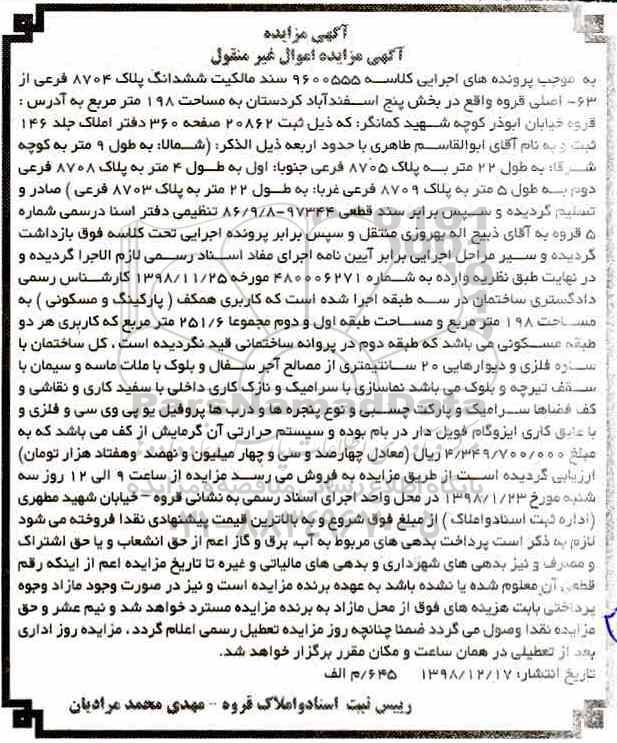 آگهی مزایده
آگهی مزایده اموال غیر منقول
به موجب پرونده های اجرایی کلاسه ۹۶۰۰۵۵۵ سند مالکیت ششدانگ پلاک ۸۷۰۴ فرعی از
۶۳- اصلی قروه واقع در بخش پنج اسفندآباد کردستان به مساحت ۱۹۸ متر مربع به آدرس :
قروه خیابان ابوذر کوچه شهید کمانگر: که ذیل ثبت ۲۰۸۶۲ صفحه ۳۶۰ دفتر املاک جلد ۱۴۶
ثبت و به نام آقای ابوالقاسم طاهری با حدود اربعه ذیل الذکر: (شمالا: به طول ۹ متر به کوچه
شرقا: به طول ۲۲ متر به پلاک ۸۷۰۵ فرعی جنوبا: اول به طول ۴ متر به پلاک ۸۷۰۸ فرعی
دوم به طول ۵ متر به پلاک ۸۷۰۹ فرعی غربا: به طول ۲۲ متر به پلاک ۸۷۰۳ فرعی ) صادر و
تسلیم گردیده و سپس برابر سند قطعی ۹۷۳۴۴-۸۶/۹/۸ تنظیمی دفتر اسنا درسمی شماره
۵ قروه به آقای ذبیح اله بهروزی منتقل و سپس برابر پرونده اجرایی تحت کلاسه فوق بازداشت
گردیده و سیر مراحل اجرایی برابر آیین نامه اجرای مفاد اسناد رسمی لازم الاجرا گردیده و
در نهایت طبق نظریه وارده به شماره ۴۸۰۰۰۶۲۷۱ مورخه ۱۳۹۸/۱۱/۲۵ کارشناس رسمی
دادگستری ساختمان در سه طبقه اجرا شده است که کاربری همکف ( پارکینگ و مسکونی ) به
مساحت ۱۹۸ متر مربع و مساحت طبقه اول و دوم مجموعا ۲۵۱/۶ متر مربع که کاربری هر دو
طبقه مسکونی می باشد که طبقه دوم در پروانه ساختمانی قید نگردیده است . کل ساختمان با
سازه فلزی و دیوارهایی ۲۰ سانتیمتری از مصالح آجر سفال و بلوک با ملات ماسه و سیمان با
سقف تیرچه و بلوک می باشد نماسازی با سرامیک و نازک کاری داخلی با سفید کاری و نقاشی و
کف فضاها سرامیک و پارکت چسبی و نوع پنجره ها و درب ها پروفیل یو پی وی سی و فلزی و
با عایق کاری ایزوگام فویل دار در بام بوده و سیستم حرارتی آن گرمایش از کف می باشد که به
مبلغ ۴/۳۴۹/۷۰۰/۰۰۰ ریال (معادل چهارصد و سی و چهار میلیون و نهصد وهفتاد هزار تومان)
ارزیابی گردیده است از طریق مزایده به فروش می رسد مزایده از ساعت ۹ الی ۱۲ روز سه
شنبه مورخ ۱۳۹۸/۱/۲۳ در محل واحد اجرای اسناد رسمی به نشانی قروه - خیابان شهید مطهری
(اداره ثبت اسنادواملاک ) از مبلغ فوق شروع و به بالاترین قیمت پیشنهادی نقدا فروخته می شود
لازم به ذکر است پرداخت بدهی های مربوط به آب، برق و گاز اعم از حق انشعاب و یا حق اشتراک
و مصرف و نیز بدهی های شهرداری و بدهی های مالیاتی و غیره تا تاریخ مزایده اعم از اینکه رقم
قطعی آن معلوم شده یا نشده باشد به عهده برنده مزایده است و نیز در صورت وجود مازاد وجوه
پرداختی بابت هزینه های فوق از محل مازاد به برنده مزایده مسترد خواهد شد و نیم عشر و حق
مزایده نقدا وصول می گردد ضمنا چنانچه روز مزایده تعطیل رسمی اعلام گردد ، مزایده روز اداری
بعد از تعطیلی در همان ساعت و مکان مقرر برگزار خواهد شد.
تاریخ انتشار: ۱۳۹۸/۱۲/۱۷ ۶۴۵/م الف
رییس ثبت اسنادواملاک قروه - مهدی محمد مرادیان